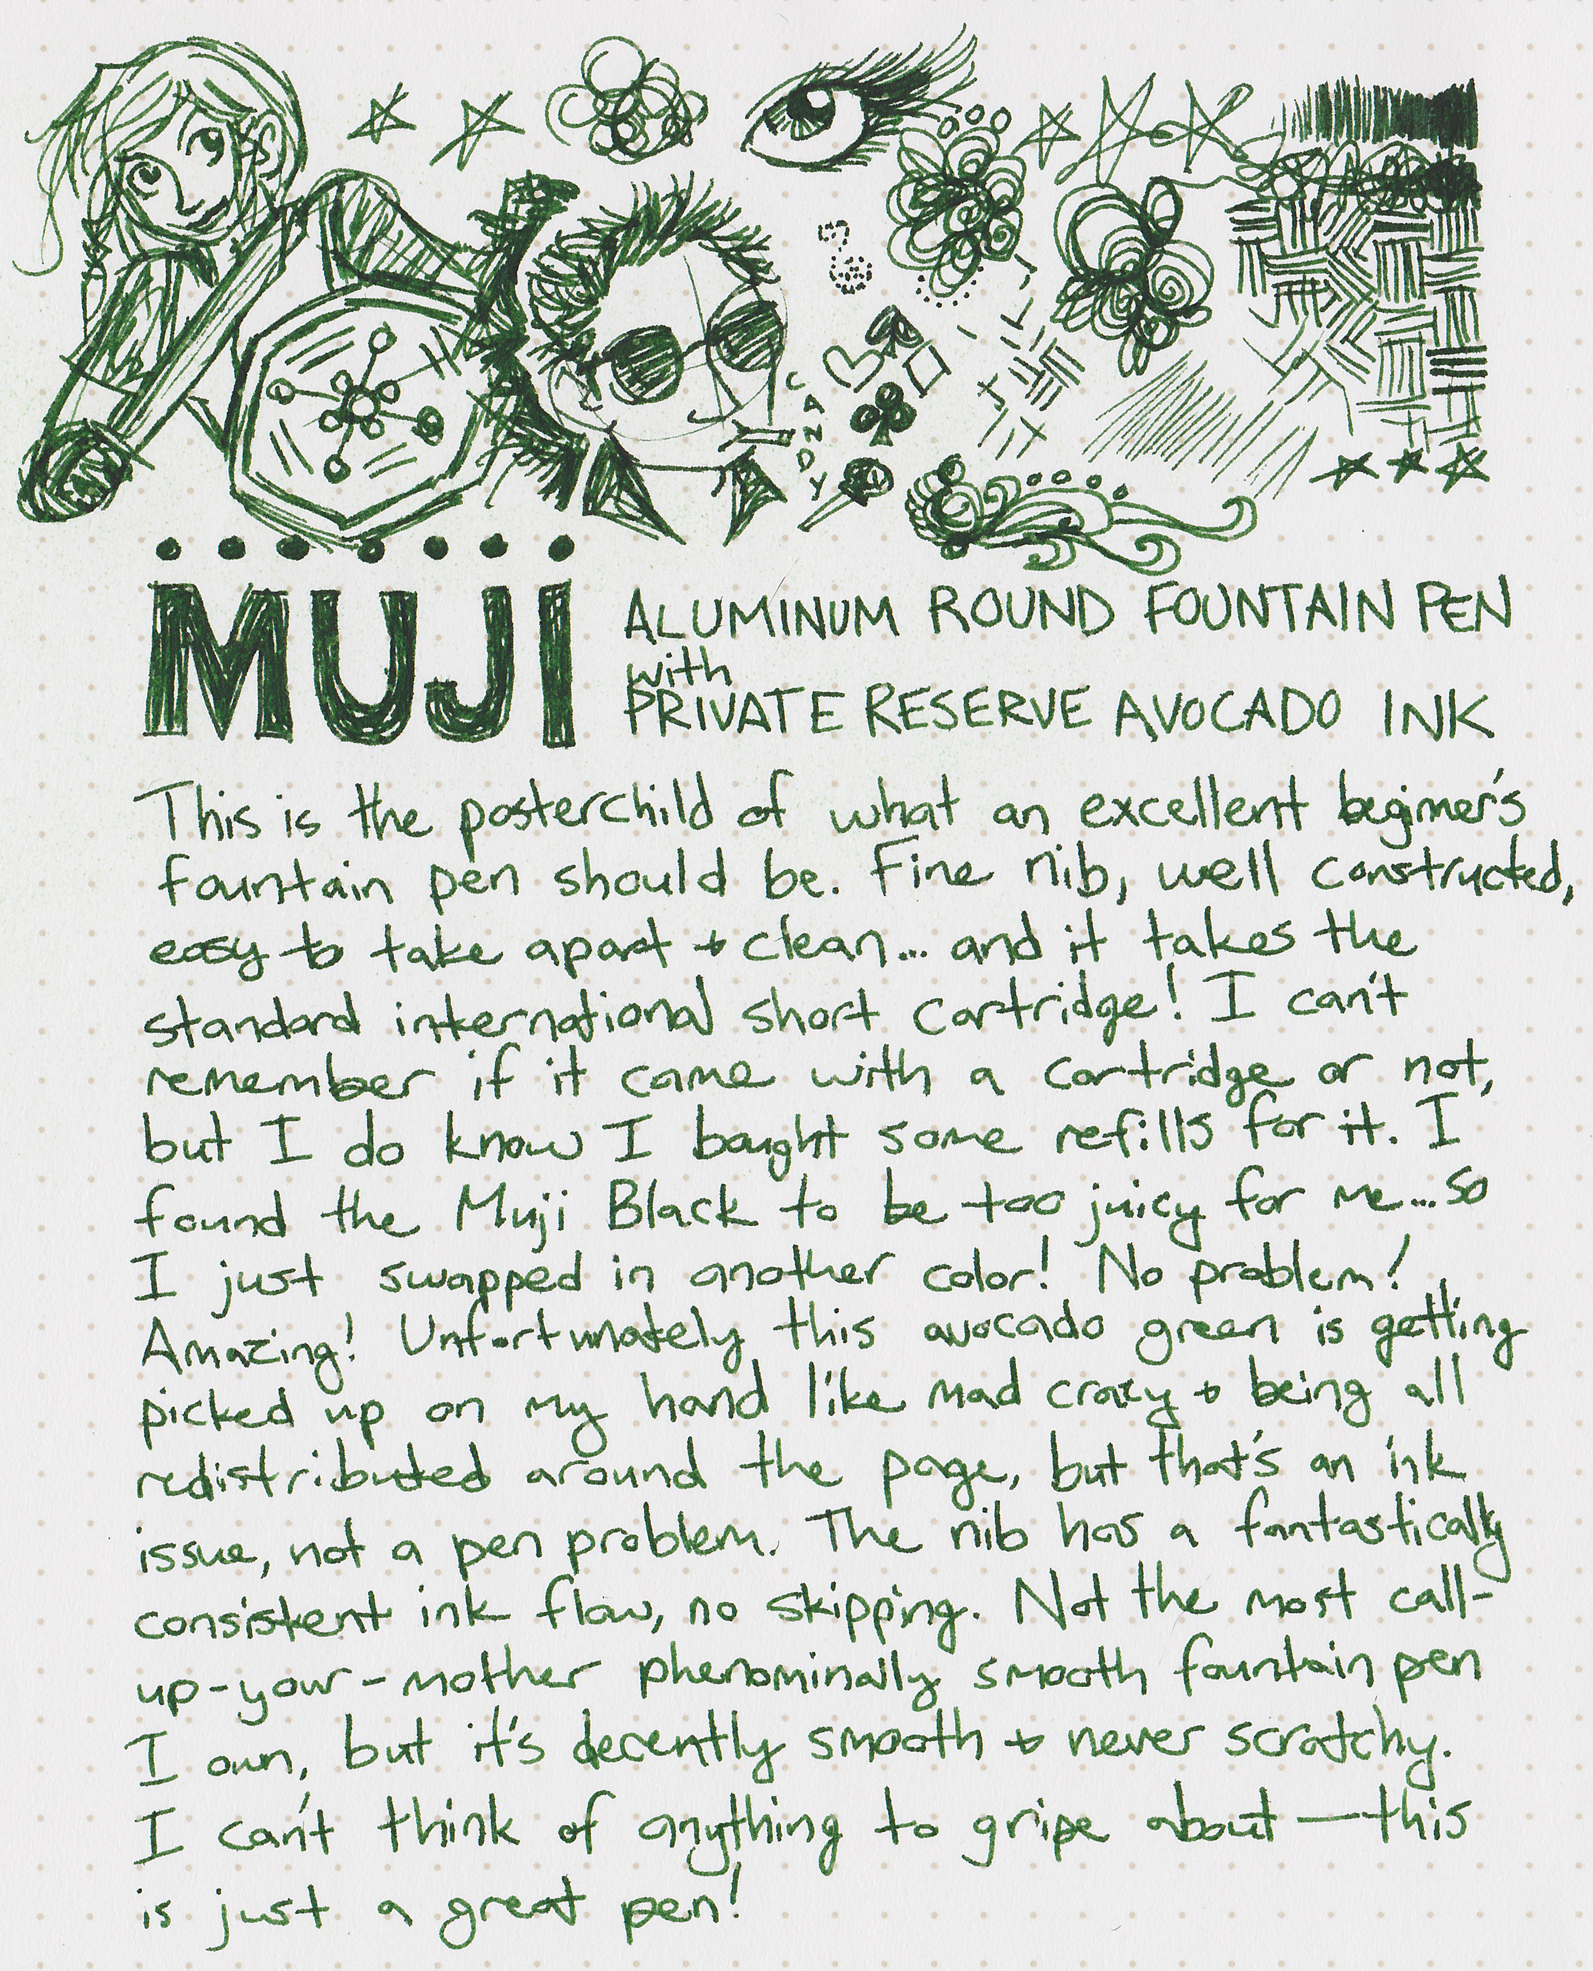 CANDY
MUJI
ALUMINUM ROUND FOUNTAIN PEN
with
PRIVATE RESERVE AVOCADO INK
This is the posterchild of what an excellent beginner's
fountain pen should be. Fine nib, well constructed,
easy to take apart + clean... and it takes the
standard international short cartridge! I can't
remember if it came with a cartridge or not,
but I do know I bought some refills for it. I
found the Muji Black to be too juicy for me...so
I just swapped in another color! No problem!
Amazing! Unfortunately this avocado green is getting
picked up on my hand like mad crazy + being all
redistributed around the page, but that's an ink
issue, not a pen problem. The nib has a fantastically
consistent ink flow, no skipping. Not the most call-
up-your-mother phenominally smooth fountain pen
I own, but it's decently smooth + never scratchy.
I can't think of anything to gripe about — this
is just a great pen!